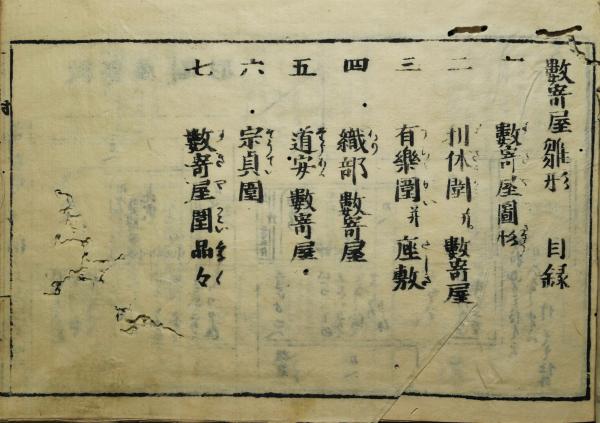 數寄屋雛形 目録
一 數寄屋圖
二 利休圍并數寄屋
三 有樂圍并座敷
四 織部數寄屋
五 道安數寄屋
六 宗貞圍
七 數寄屋圍品々